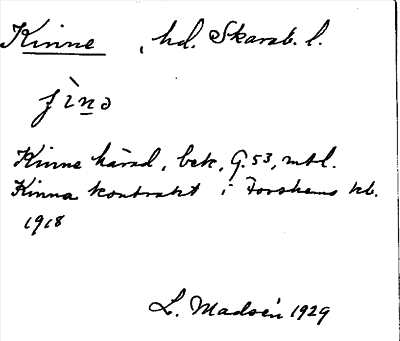 Kinne , hd. Skarab. l.
jìnə
Kinne härad, bek, G. 53, mtl.
Kinna kontrakt i Forshems kb.
1918
L. Madsén 1929